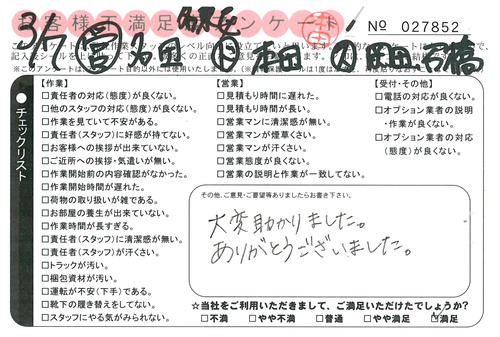 お客様不満足アンケート
№ 027852
チェックリスト
【作業】
□責任者の対応(態度)が良くない。
□他のスタッフの対応(態度)が良くない。
□作業を見ていて不安がある。
□責任者(スタッフ)に好感が持てない。
□お客様への挨拶が出来ていない。
□ご近所への挨拶・気遣いが無い。
□作業開始前の内容確認がなかった。
□作業開始時間が遅れた。
□荷物の取り扱いが雑である。
□お部屋の養生が出来ていない。
□作業時間が長すぎる。
□責任者(スタッフ)に清潔感が無い。
□責任者(スタッフ)が汗くさい。
□トラックが汚い。
□梱包資材が汚い。
□運転が不安(下手)である。
□靴下の履き替えをしてない。
□スタッフにやる気がみられない。
【営業】
□見積もり時間に遅れた。
□見積もり時間が長い。
□営業マンに清潔感が無い。
□営業マンが煙草くさい。
□営業マンが汗くさい。
□営業態度が良くない。
□営業の説明と作業が一致してない。
【受付・その他】
□電話の対応が良くない。
□オプション業者の説明
・作業が良くない。
□オプション業者の対応
(態度)が良くない。
その他、ご意見・ご要望等ありましたらお書き下さい。
大変助かりました。
ありがとうございました。
☆当社をご利用いただきまして、ご満足いただけたでしょうか?
□不満 □やや不満 □普通 □やや満足 □満足